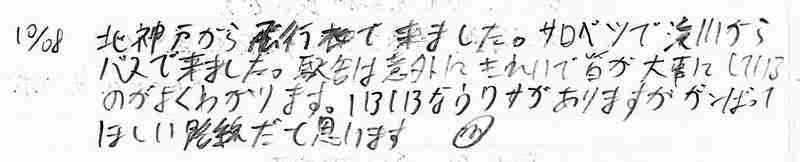 10/08 北神戸から飛行機で来ました。サロベツで滝川から
バスで来ました。駅舎は意外にきれいで皆が大事にしている
のがよくわかります。いろいろなウワサがありますががんばって
ほしい路線だと思います